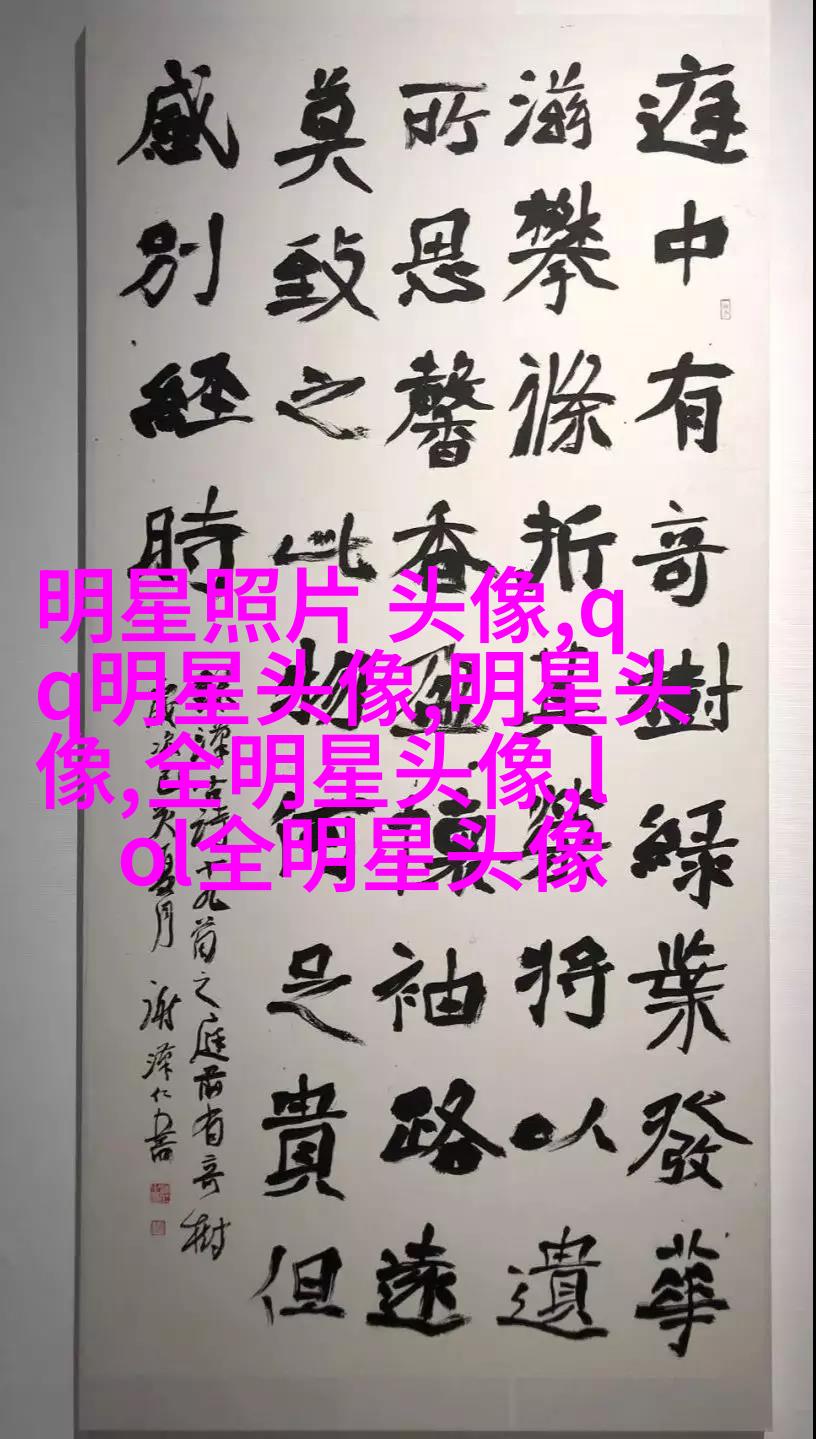 庭中有奇樹綠葉發華
滋攀條折其榮將以遺
所思馨香盈懷袖路遠
莫致之此物何足貴但
感別經時
古詩十九首之庭前有奇樹
夏月 謝澤仁書
明星照片 头像,q
q明星头像,明星头
像,全明星头像,l
ol全明星头像